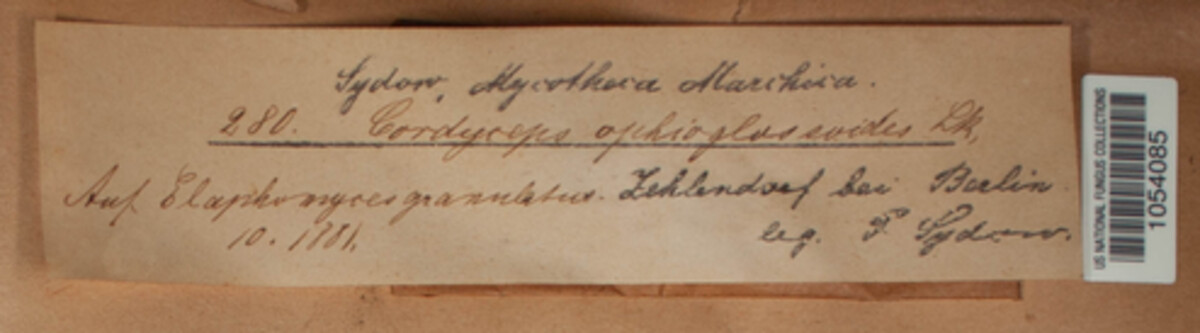 Sydow, Mycotheca Marchica.
280. Cordyceps ophioglossoides Lk.
Auf Elaphomyces granulatus. Zehlendorf bei Berlin
10. 1881. leg. P. Sydow.
US NATIONAL FUNGUS COLLECTIONS
1054085